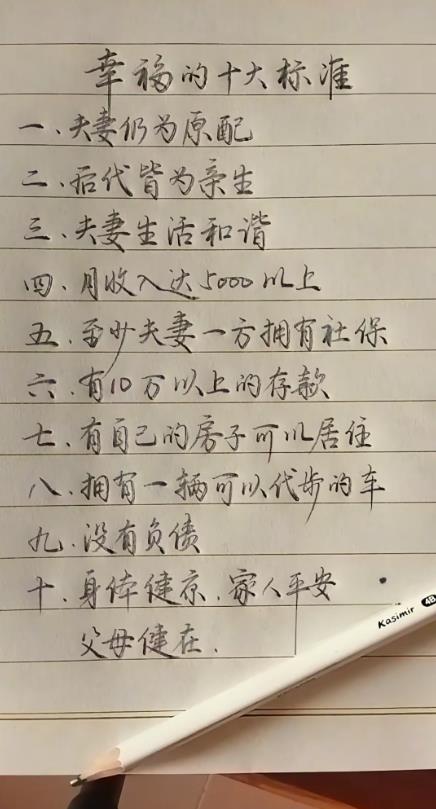 幸福的十大标准
一、夫妻仍为原配
二、后代皆为亲生
三、夫妻生活和谐
四、月收入达5000以上
五、至少夫妻一方拥有社保
六、有10万以上的存款
七、有自己的房子可以居住
八、拥有一辆可以代步的车
九、没有负债
十、身体健康、家人平安
父母健在.
Kasimir 4B